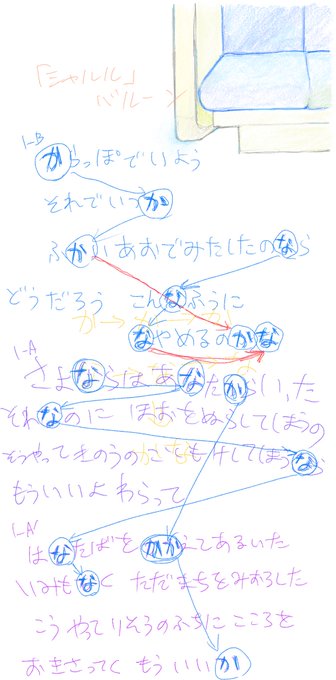 「シャルル」
バルーン
1-B
からっぽでいよう
それでいつか
ふかいあおでみたしたのなら
どうだろう こんなふうに
か→
なやめるのかな
1-A
さよならはあなたからいった
それなあにほおをぬらしてしまうの
そうやってきのうのことも けしてしまうなら
もういいよ わらって
1-A'
はなたばをかかえてあるいた
いみもなく ただまちをみおろした
こうやってりそうのふちに こころを
おきさってく もういいか